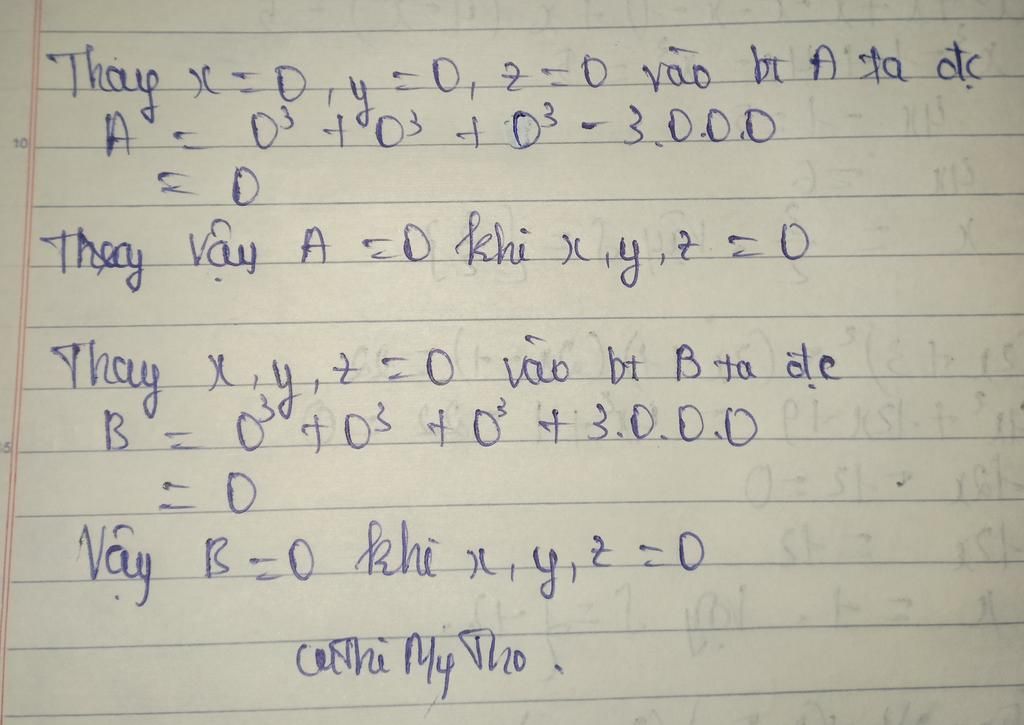 Thay x = 0, y = 0, z = 0 vào bt A ta đc
A = 0³ + 0³ + 0³ - 3.0.0.0
= 0
Vậy A = 0 khi x, y, z = 0
Thay x, y, z = 0 vào bt B ta đc
B = 0³ + 0³ + 0³ + 3.0.0.0
= 0
Vậy B = 0 khi x, y, z = 0
Thi Mỹ Tho.